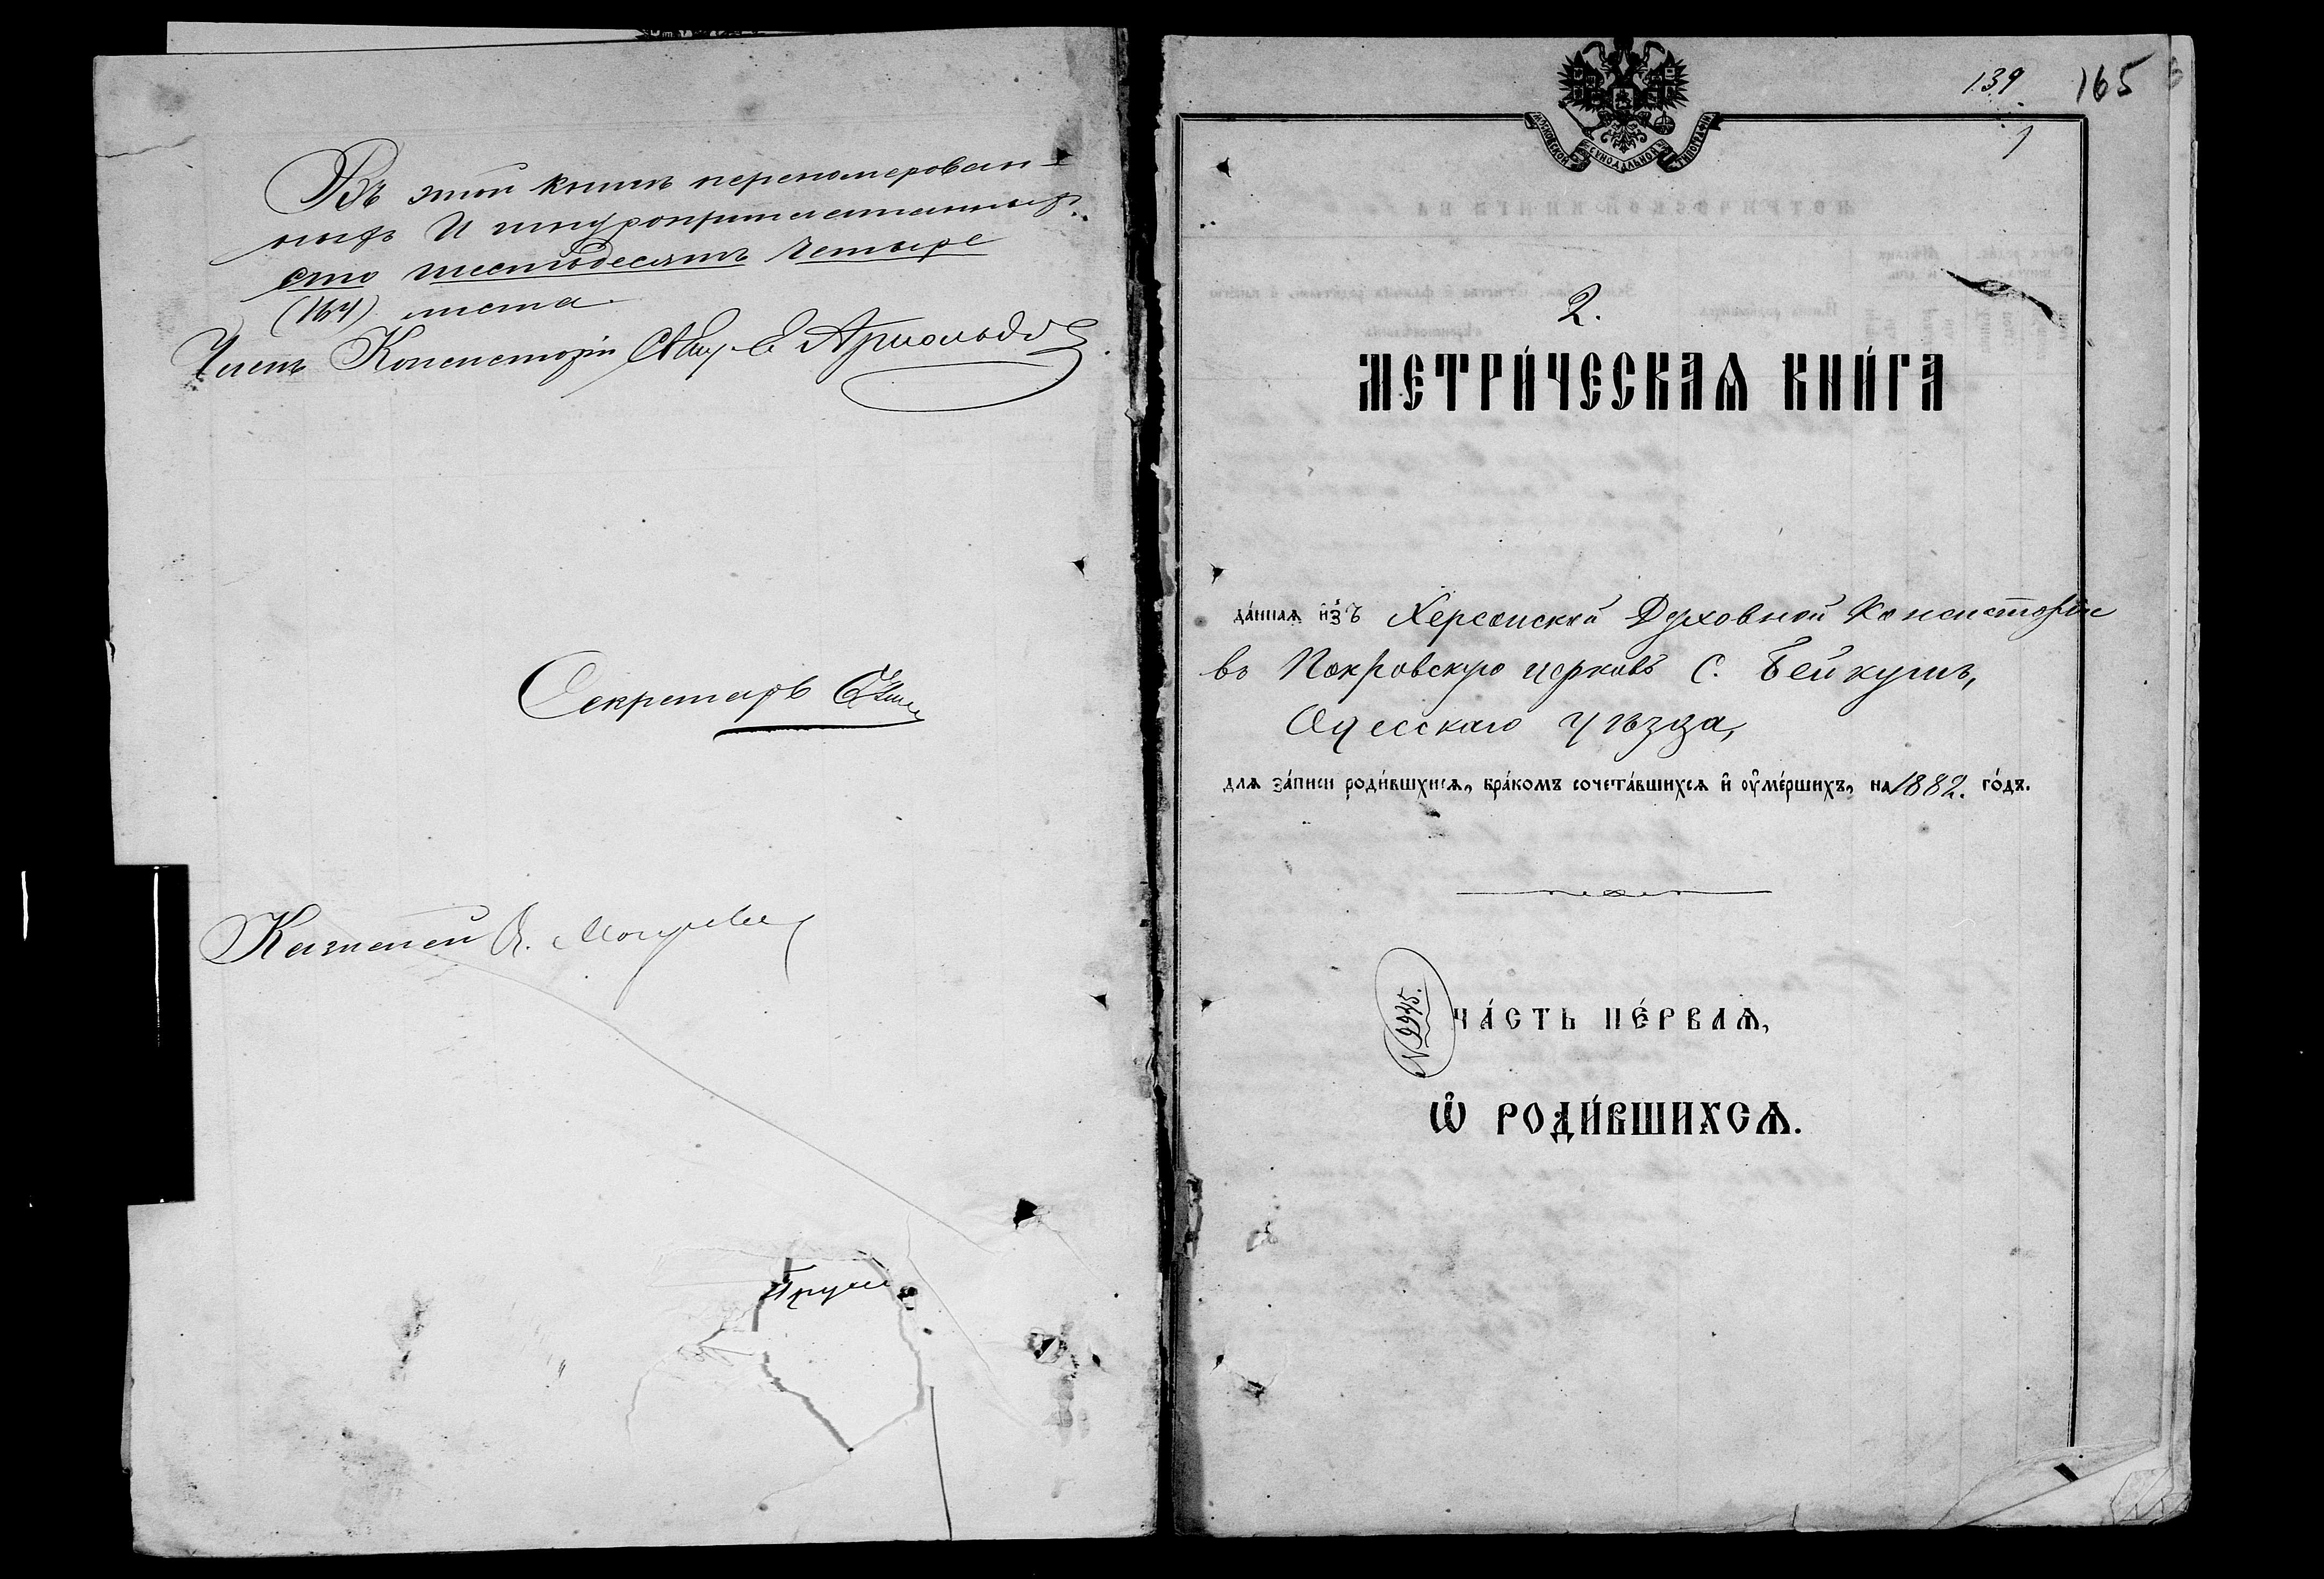 Въ этой книгѣ перенумерован-
ныхъ И шнуроприпечатанныхъ
сто шестьдесятъ четыре
(164) листа.
Членъ Консисторіи Арнольдъ
Секретарь
Казначей
139 165
1
МОСКОВСКОЙ СѴНОДАЛЬНОЙ ТИПОГРАФІИ
2.
МЕТРИ́ЧЕСКАѦ КНИ́ГА
да́ннаѧ и҆зъ Херсонской Духовной Консисторіи
въ Покровскую церковь С. Бейкушъ,
Одесскаго уѣзда,
для за́писи роди́вшихсѧ, бра́комъ сочета́вшихсѧ и҆ ᲂу҆ме́ршихъ, на 1882. го́дъ.
N 2245.
ЧА́СТЬ ПЕ́РВАѦ,
Ѽ РОДИ́ВШИХСѦ.